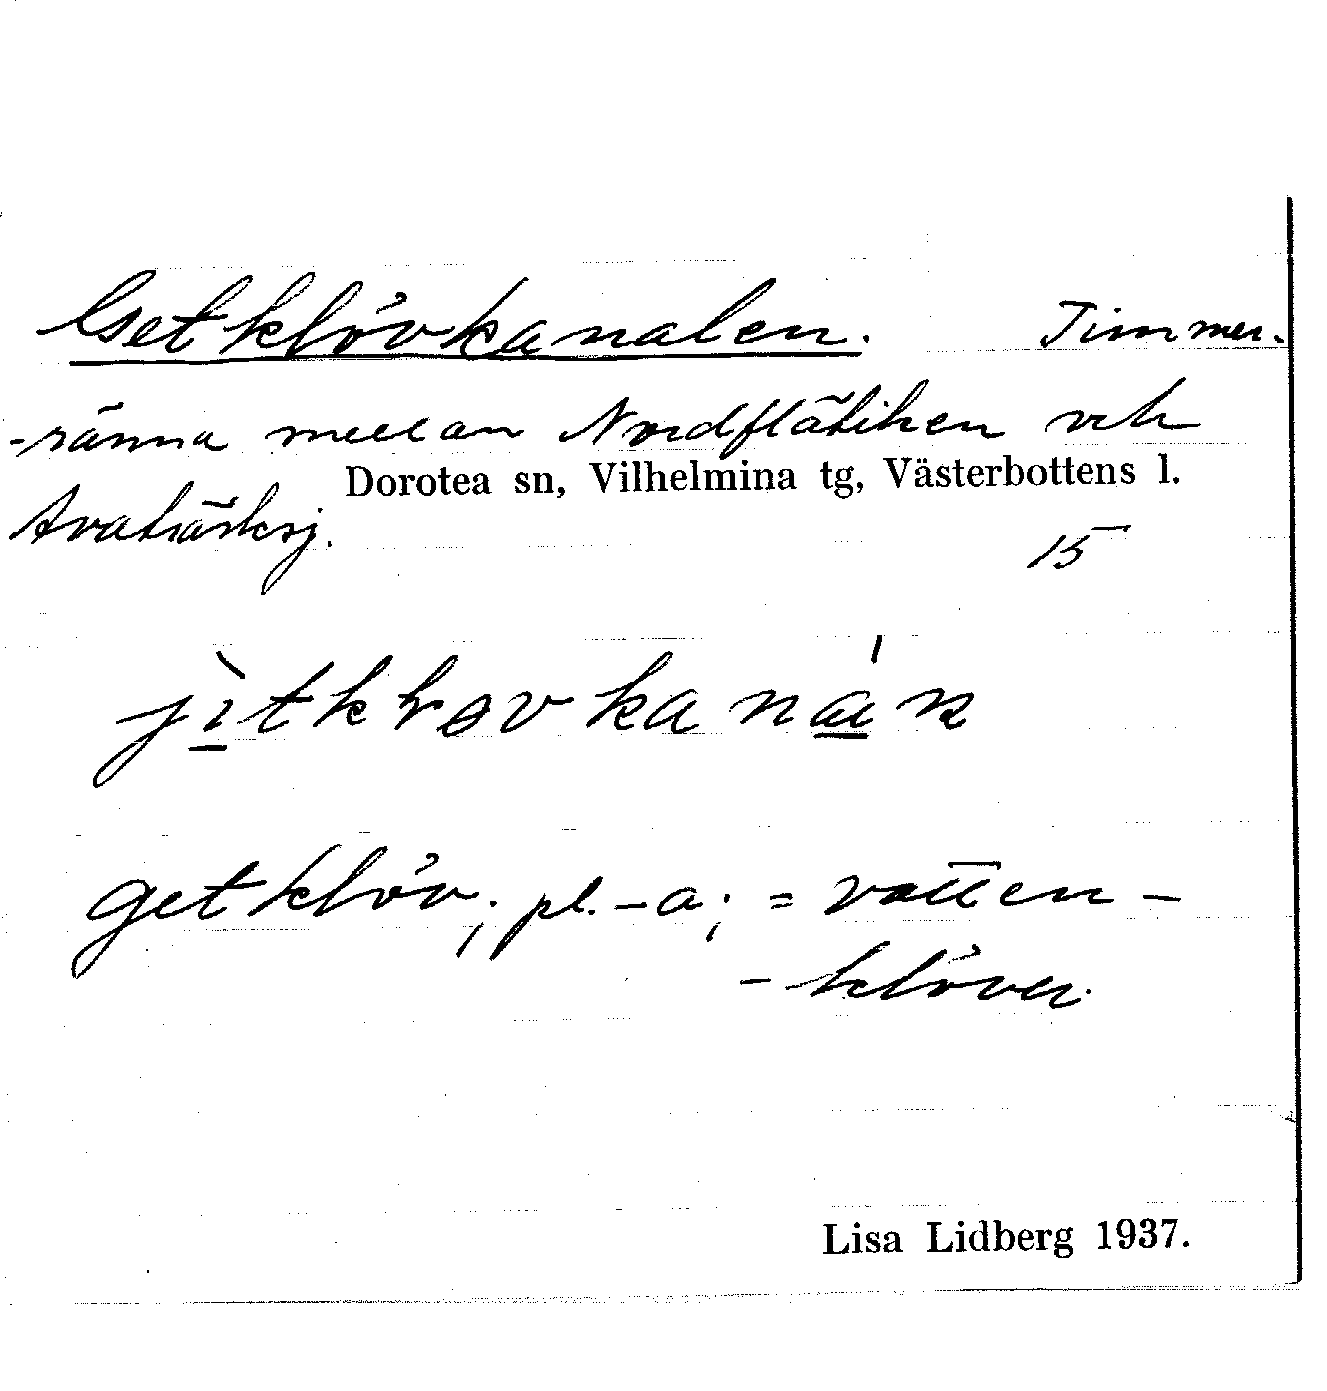 Getklövkanalen. Timmer-
-ränna mellan Nordflåtiken och
Dorotea sn, Vilhelmina tg, Västerbottens l.
Avaträsksj.
15
getklöv; pl. -a; = vatten-
-klöver.
Lisa Lidberg 1937.